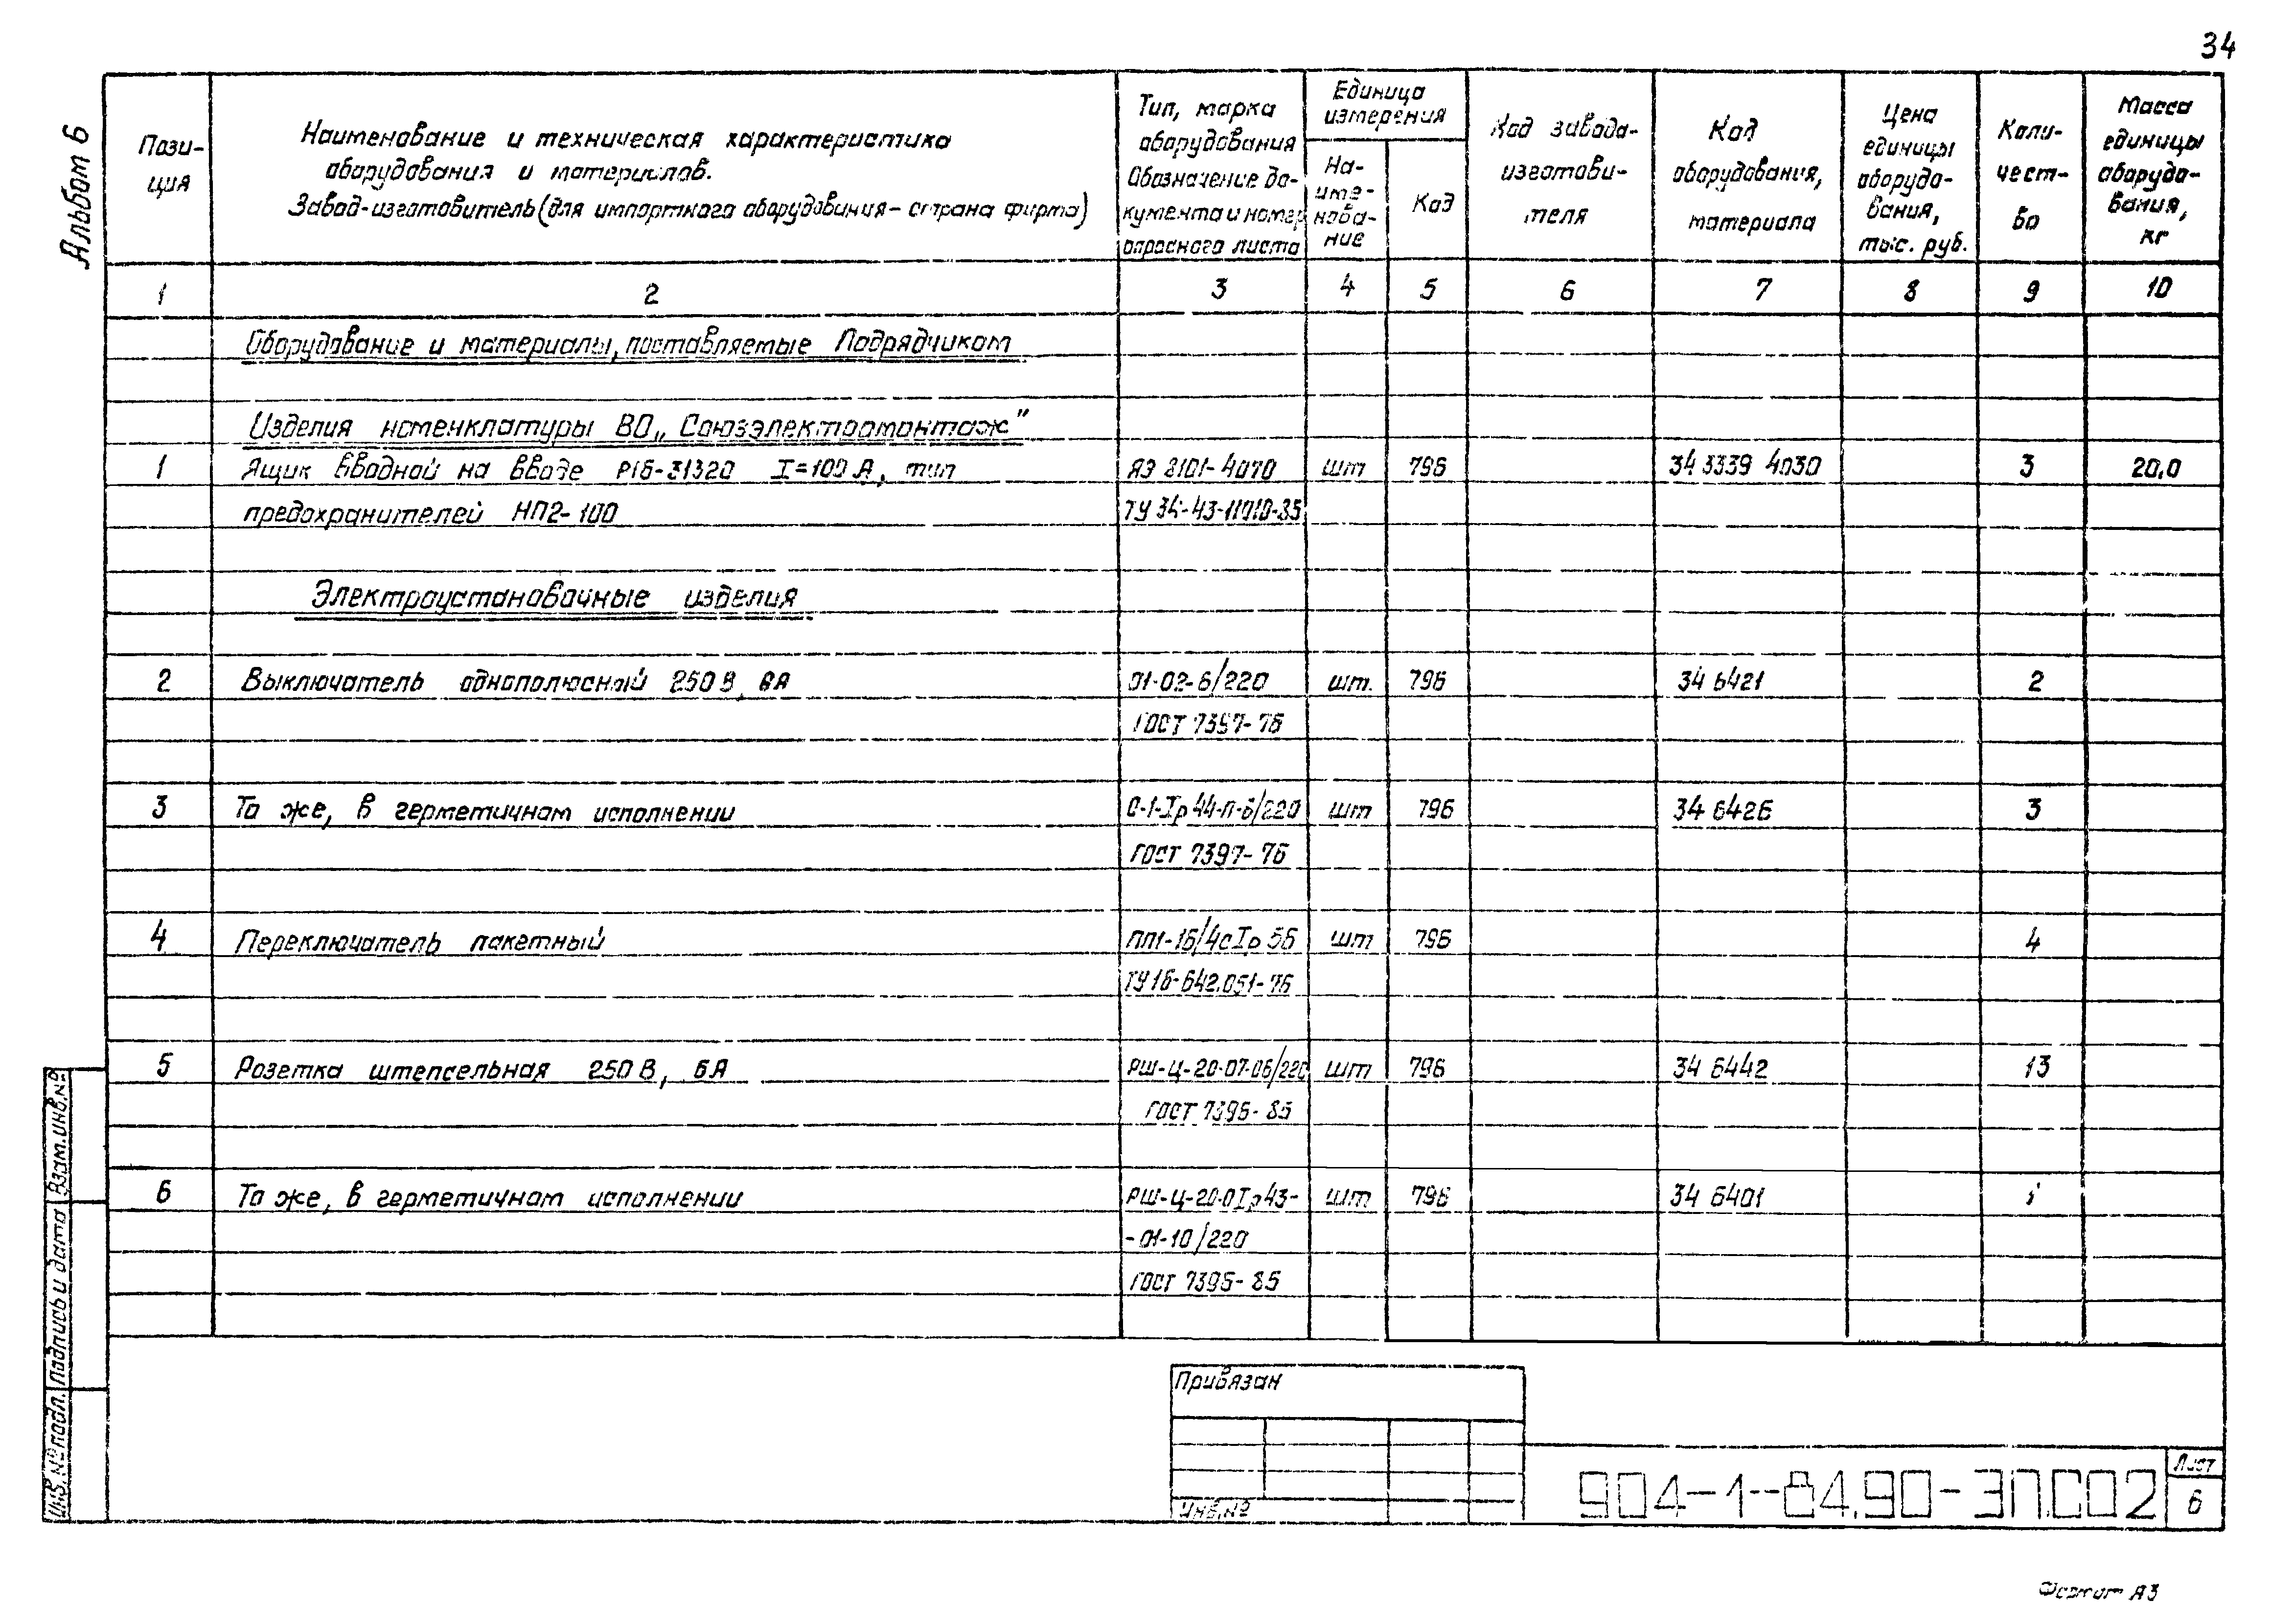 34
Альбом 6
Пози-
ция
Наименование и техническая характеристика
оборудования и материалов.
Завод-изготовитель (для импортного оборудования - страна фирма)
Тип, марка
оборудования
Обозначение до-
кумента и номер
опросного листа
Единица
измерения
На-
име-
нова-
ние
Код
Код завода-
изготови-
теля
Код
оборудования,
материала
Цена
единицы
оборудо-
вания,
тыс. руб.
Коли-
чест-
во
Масса
единицы
оборудо-
вания,
кг
1 2 3 4 5 6 7 8 9 10
Оборудование и материалы, поставляемые Подрядчиком
Изделия номенклатуры ВО „Союзэлектромонтаж"
1 Ящик вводной на вводе Р16-31320 I=100 А, тип ЯЭ 8101-4070 шт 796 34 3339 4030 3 20,0
предохранителей НП2-100 ТУ 34-43-11010-85
Электроустановочные изделия
2 Выключатель однополюсный 250 В, 6А 01-02-6/220 шт. 796 34 6421 2
ГОСТ 7397-76
3 То же, в герметичном исполнении 0-1-Iр44-п-6/220 шт 796 34 6426 3
ГОСТ 7397-76
4 Переключатель пакетный ПП1-16/4с Iр 56 шт 796 4
ТУ16-642.051-76
5 Розетка штепсельная 250 В, 6А РШ-Ц-20-07-06/220 шт 796 34 6442 13
ГОСТ 7396-85
6 То же, в герметичном исполнении РШ-Ц-20-0 Iр43- шт 796 34 6401 1
-01-10/220
ГОСТ 7396-85
Взам.инв.№
Подпись и дата
Инв.№ подл.
Привязан
Инв.№
904-1-84.90-ЭП.СО2
Лист
6
Формат А3